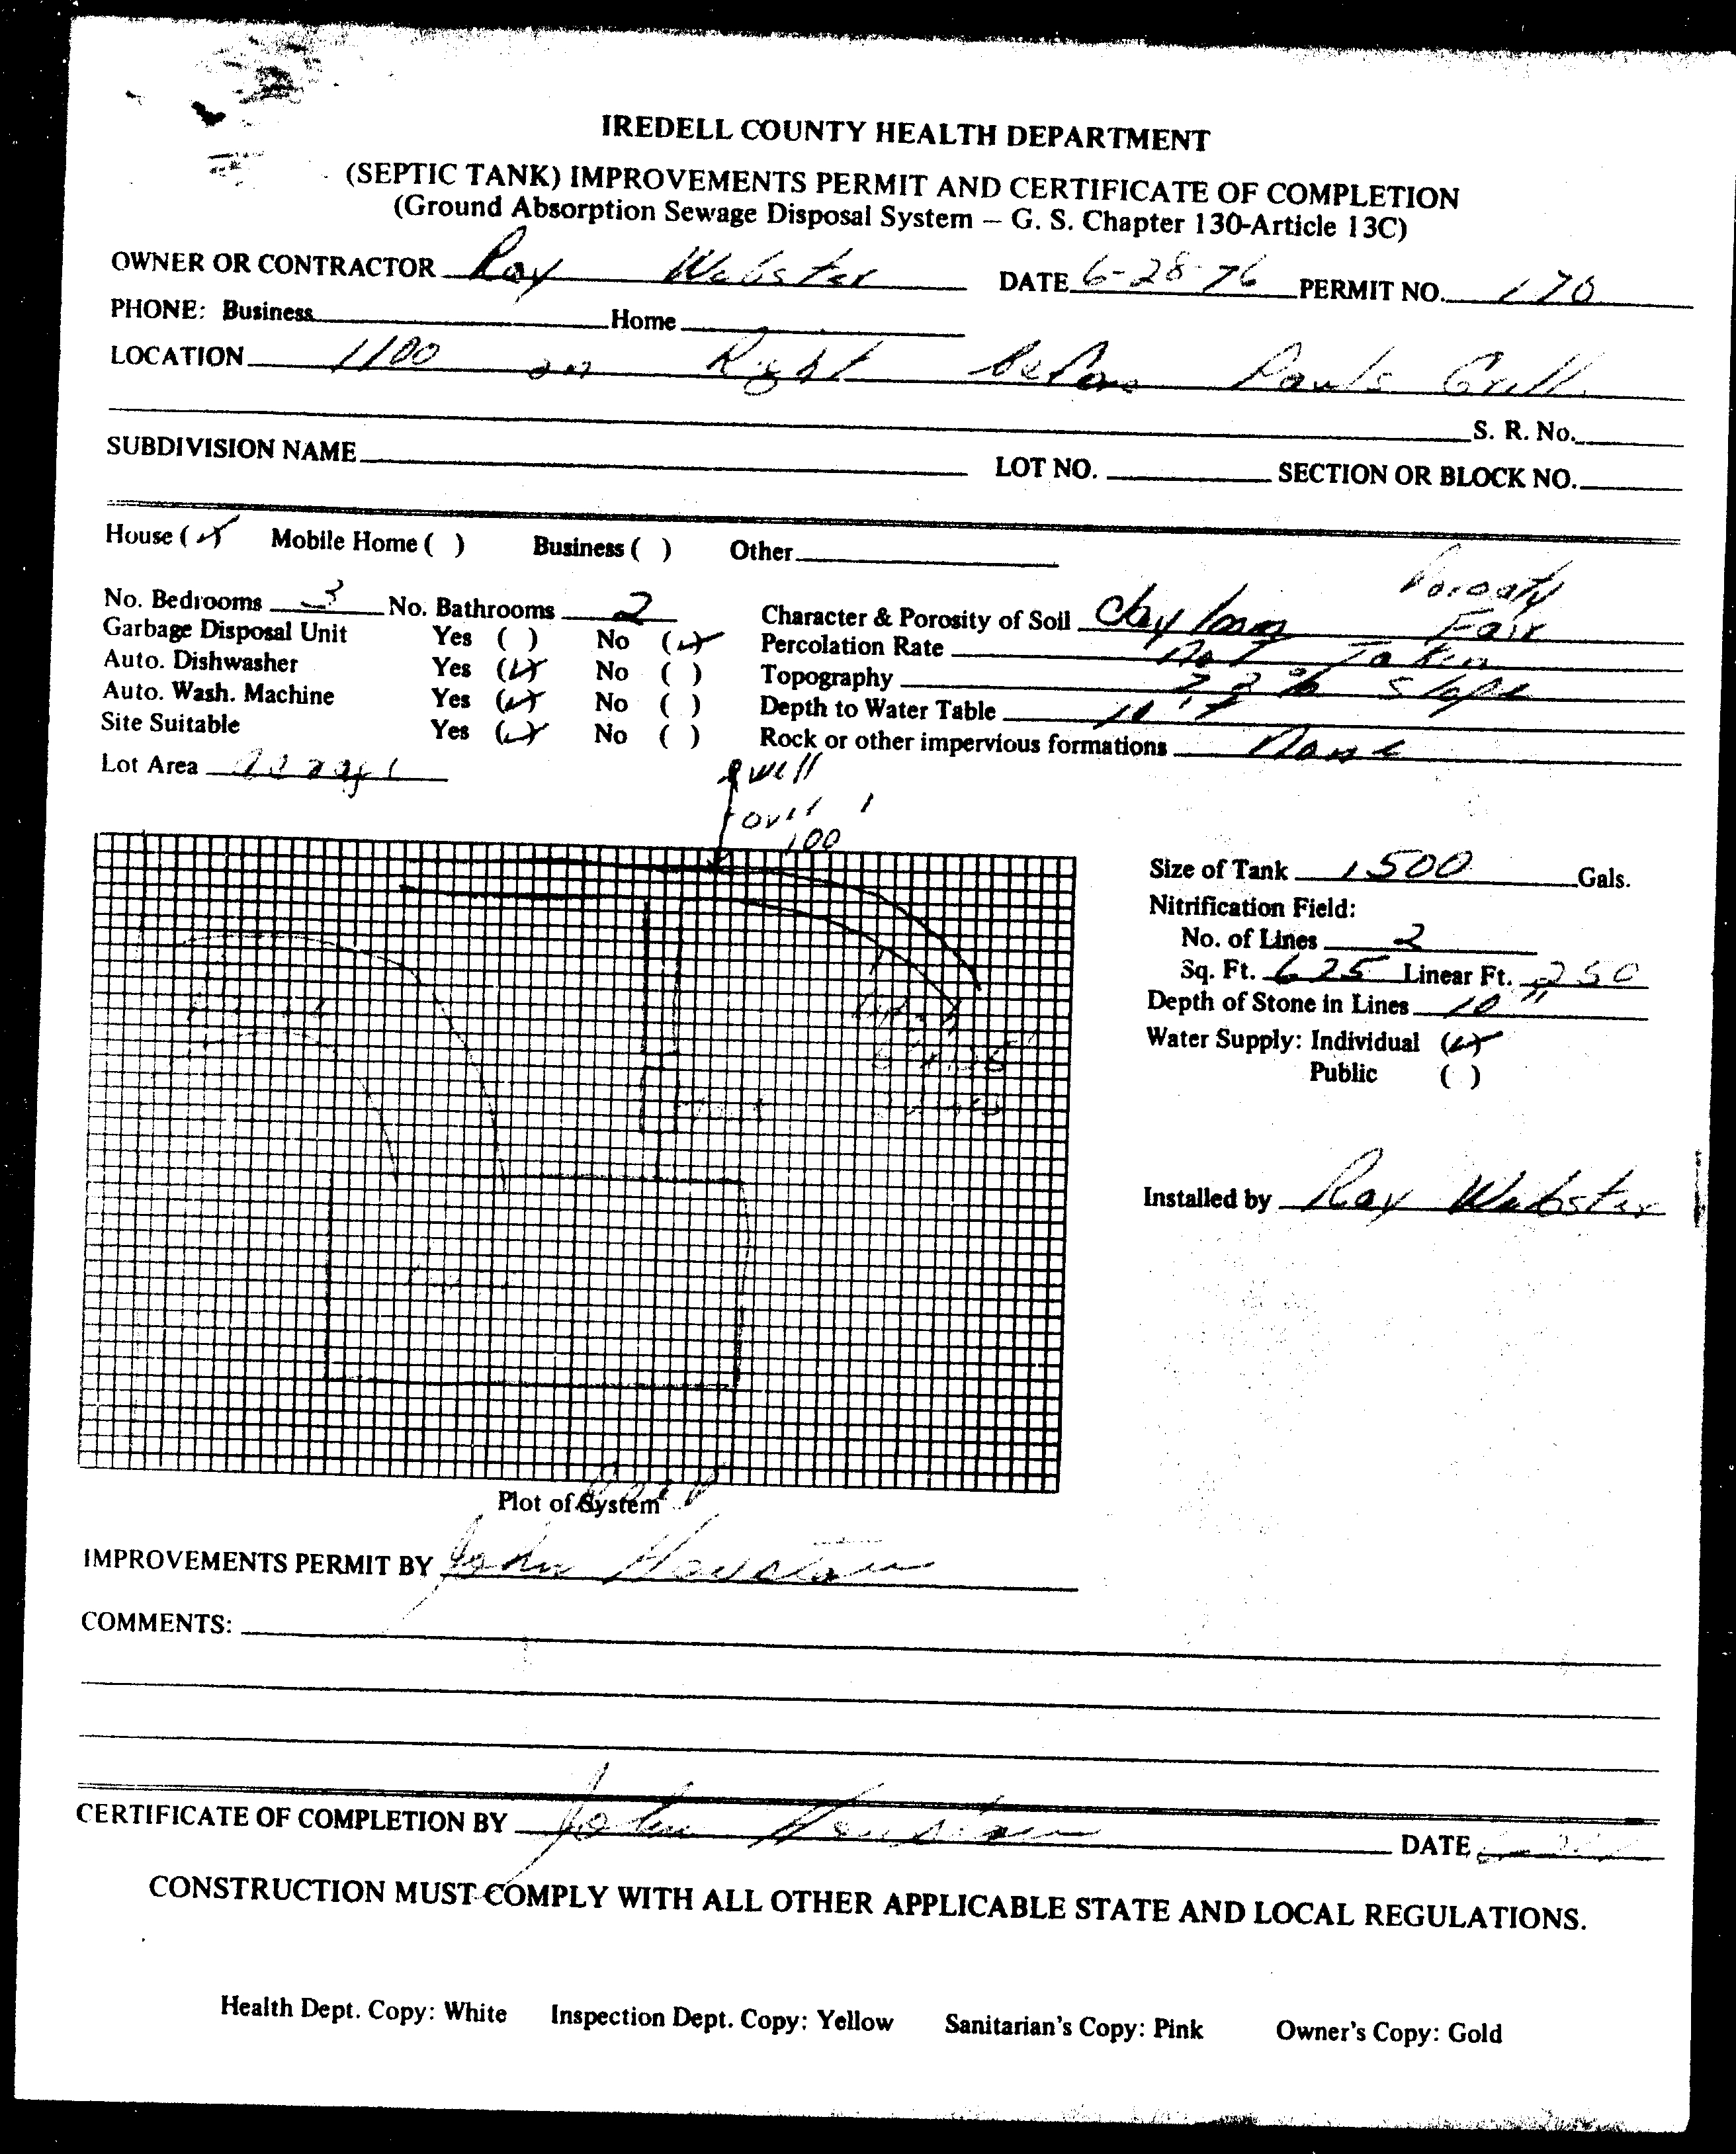 IREDELL COUNTY HEALTH DEPARTMENT
(SEPTIC TANK) IMPROVEMENTS PERMIT AND CERTIFICATE OF COMPLETION
(Ground Absorption Sewage Disposal System — G. S. Chapter 130-Article 13C)
OWNER OR CONTRACTOR Ray Webster DATE 6-28-76 PERMIT NO. 170
PHONE: Business Home
LOCATION 1100 on Right before Pauls Grill
S. R. No.
SUBDIVISION NAME LOT NO. SECTION OR BLOCK NO.
House (✓) Mobile Home ( ) Business ( ) Other
Porosity
No. Bedrooms 3 No. Bathrooms 2 Character & Porosity of Soil Clay loam Fair
Garbage Disposal Unit Yes ( ) No (✓) Percolation Rate Not Taken
Auto. Dishwasher Yes (✓) No ( ) Topography % Slope
Auto. Wash. Machine Yes (✓) No ( ) Depth to Water Table 10'+
Site Suitable Yes (✓) No ( ) Rock or other impervious formations None
Lot Area
well
over 100'
Size of Tank 1500 Gals.
Nitrification Field:
No. of Lines 2
Sq. Ft. 625 Linear Ft. 250
Depth of Stone in Lines 10"
Water Supply: Individual (✓)
Public ( )
Installed by Ray Webster
Plot of System
IMPROVEMENTS PERMIT BY John Houston
COMMENTS:
CERTIFICATE OF COMPLETION BY John Houston DATE
CONSTRUCTION MUST COMPLY WITH ALL OTHER APPLICABLE STATE AND LOCAL REGULATIONS.
Health Dept. Copy: White Inspection Dept. Copy: Yellow Sanitarian's Copy: Pink Owner's Copy: Gold